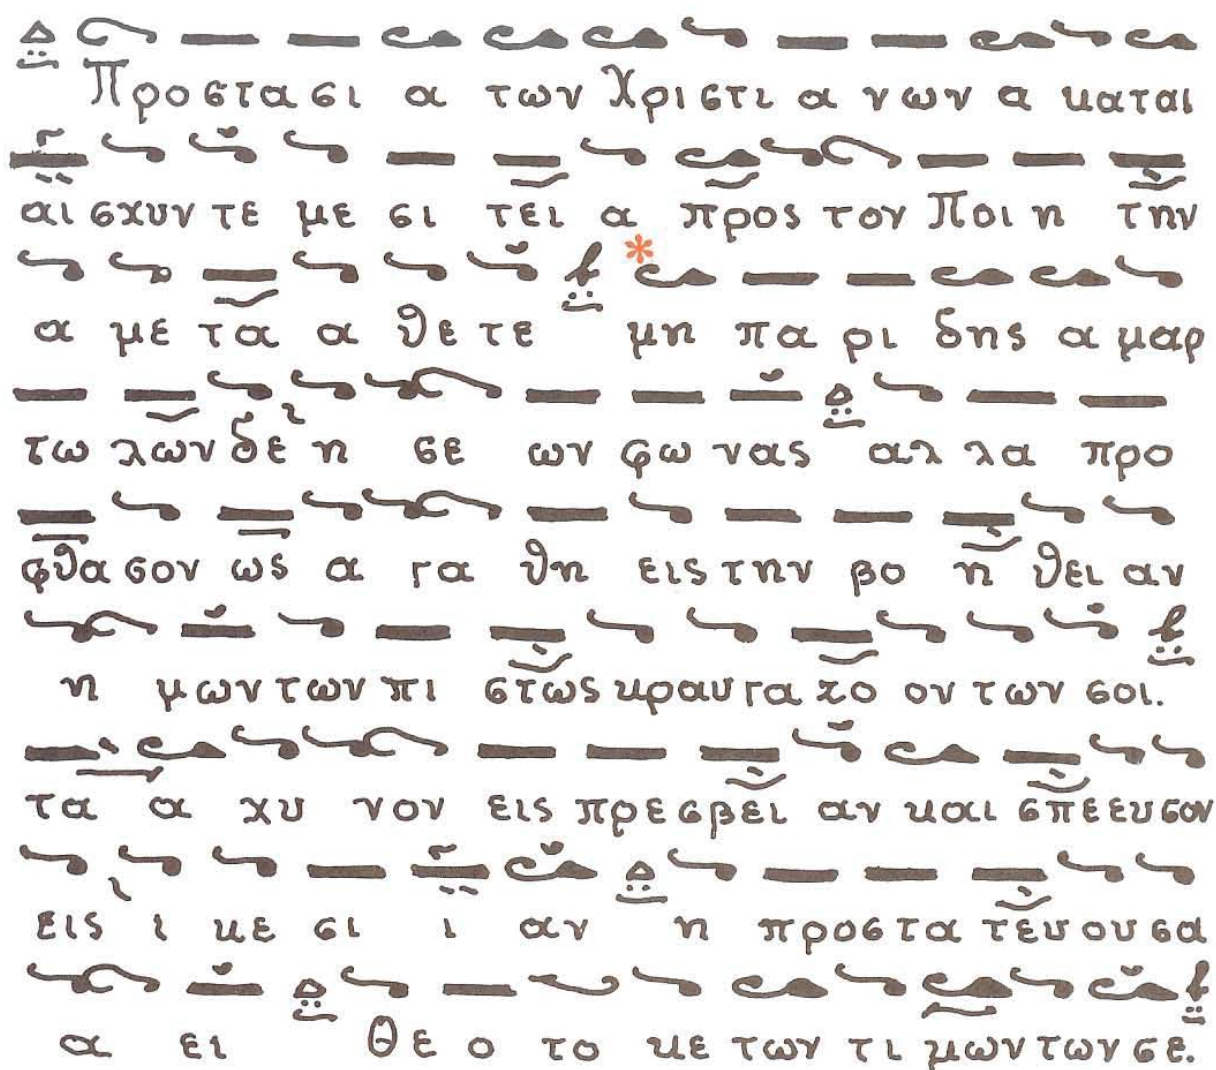 Προστασι α των Χριστι α νων α καται
αι σχυν τε με σι τει α προς τον Ποι η την
α με τα α θε τε μη πα ρι δης α μαρ
τω λων δε η σε ων φω νας αλ λα προ
φθα σον ως α γα θη εις την βο η θει αν
η μων των πι στως κραυγα ζο ον των σοι.
τα α χυ νον εις πρεσβει αν και σπεευσον
εις ι κε σι ι αν η προστα τευουσα
α ει Θε ο το κε των τι μων των σε.